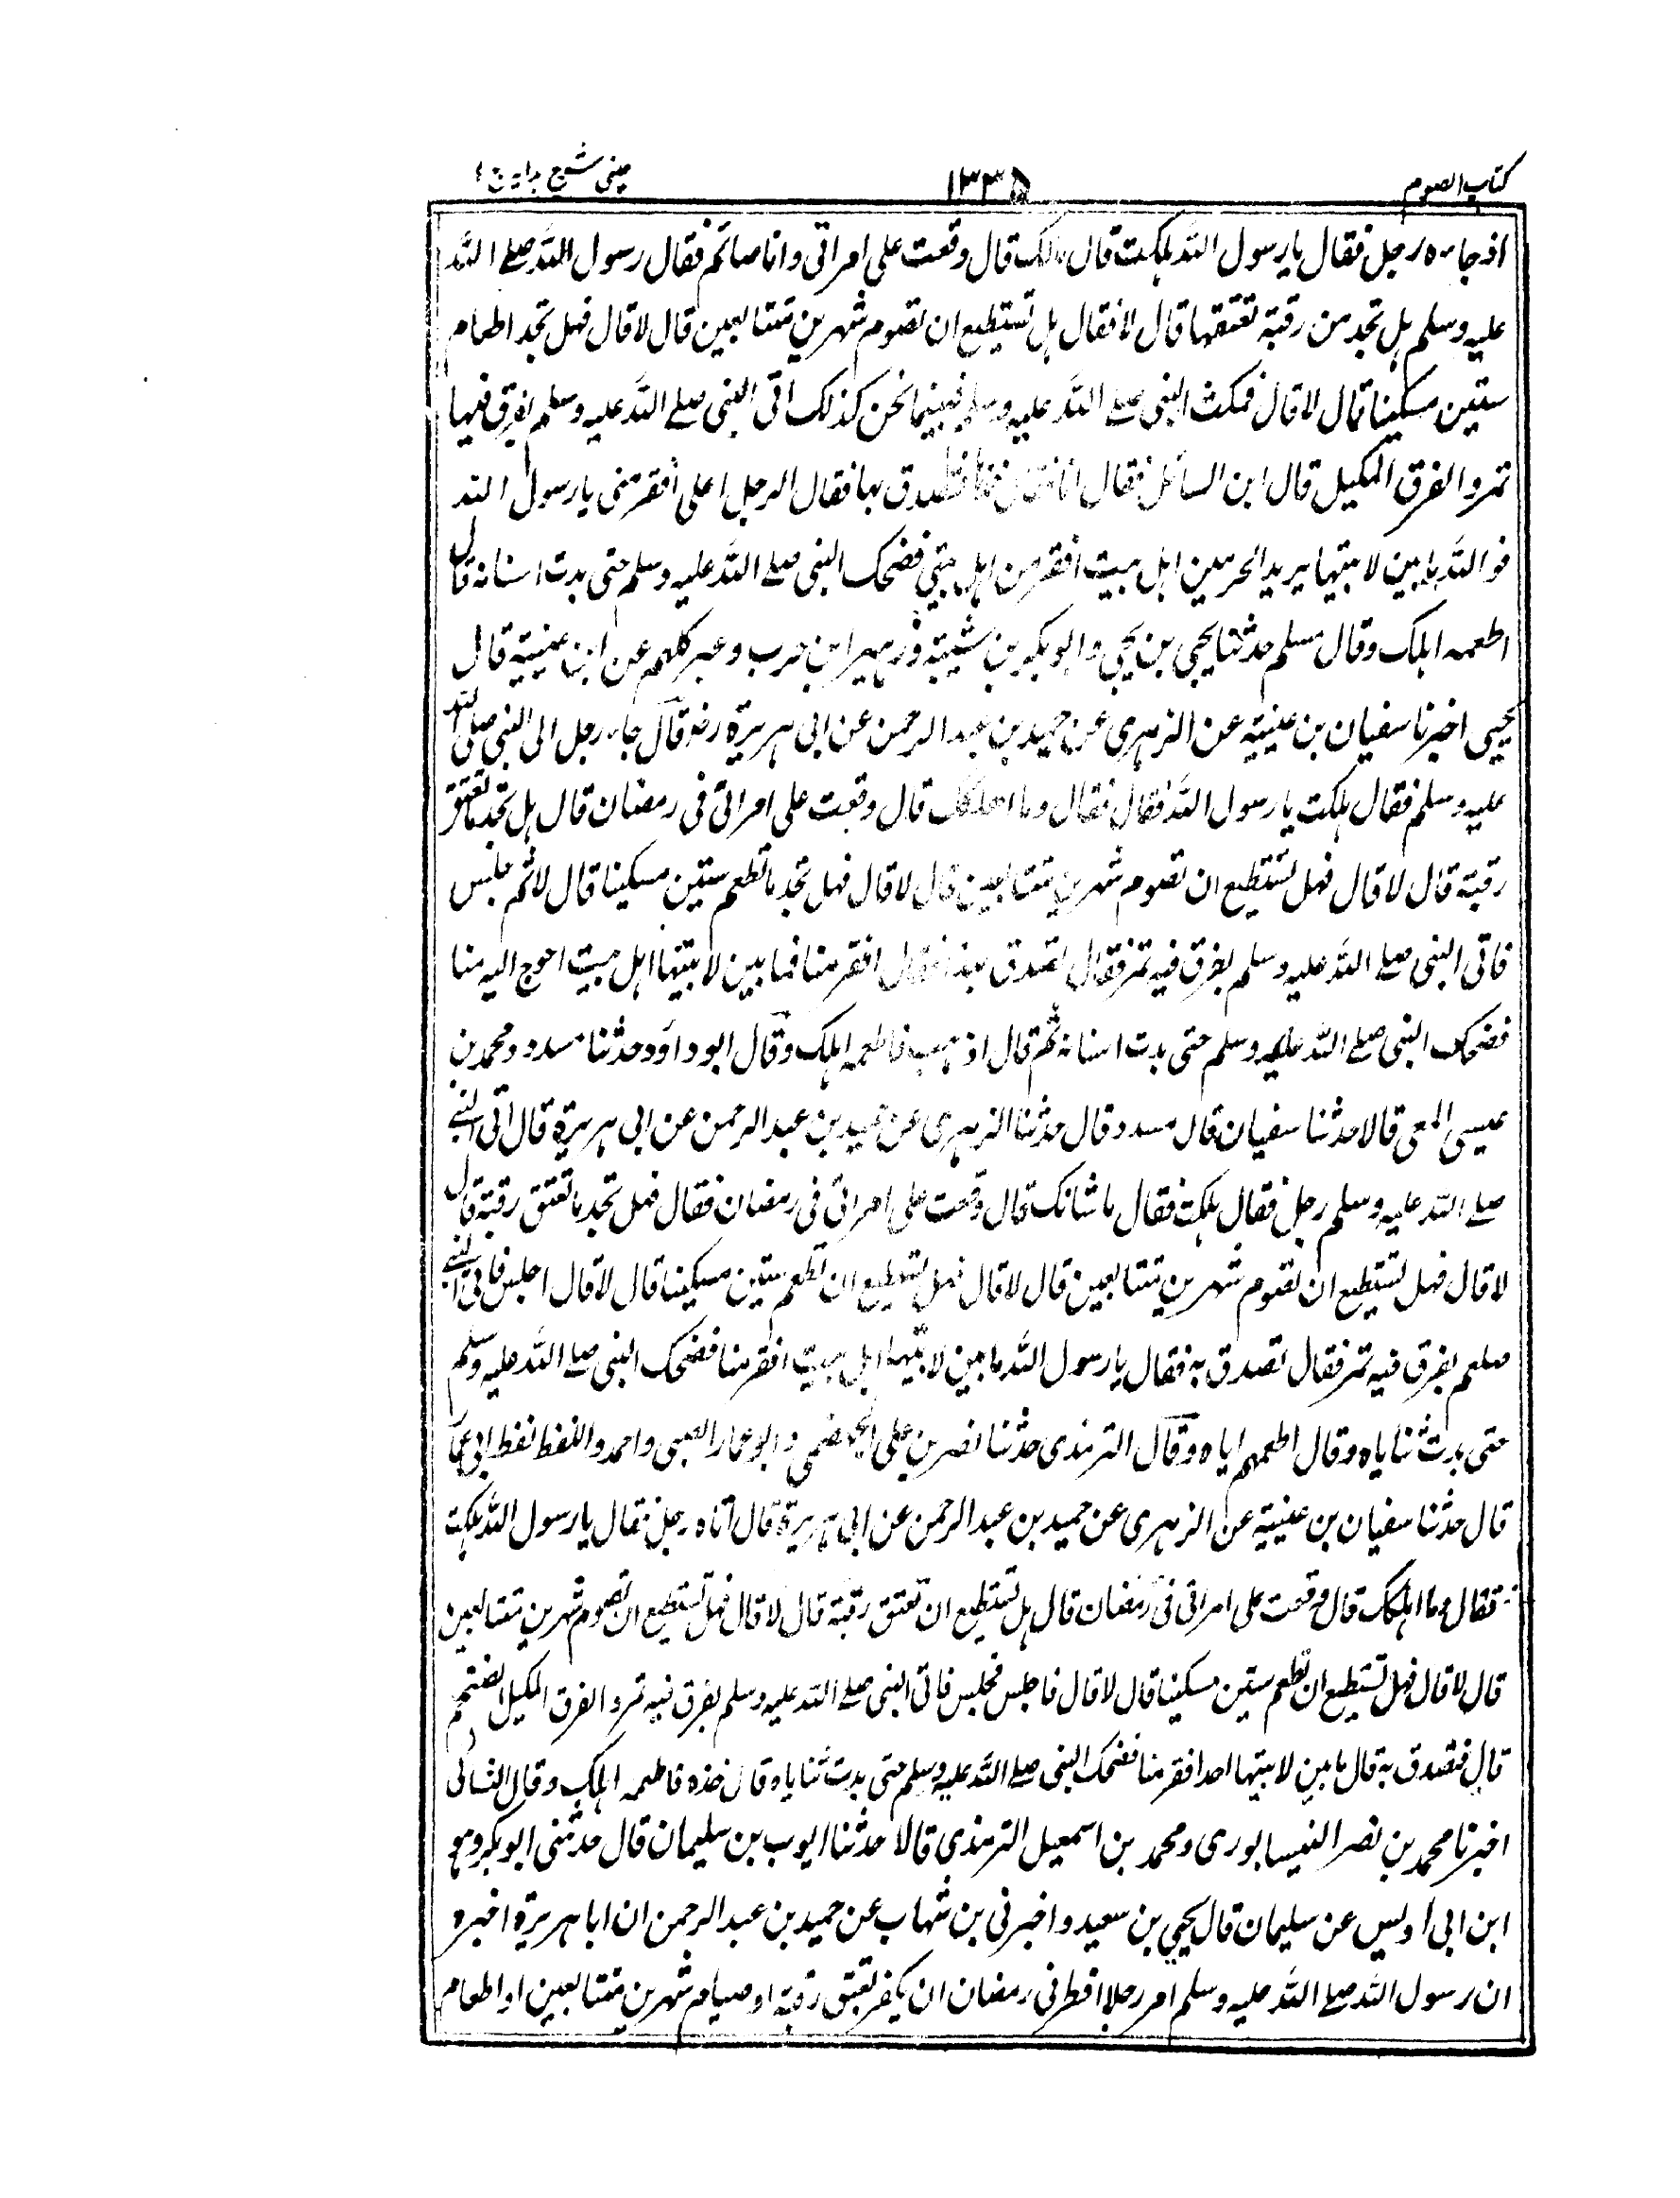 كتاب الصوم ١٣٣٥ عيني شرح هداية
اذ جاءه رجل فقال يا رسول الله هلكت قال مالك قال وقعت على امراتى وانا صائم فقال رسول الله صلے الله
عليه وسلم هل تجد من رقبة تعتقها قال لا فقال هل تستطيع ان تصوم شهرين متتابعين قال لا قال فهل تجد اطعام
ستين مسكينا قال لا قال فمكث النبى صلے الله عليه وسلم فبينما نحن كذلك اتى النبى صلے الله عليه وسلم بفرق فيها
تمر والفرق المكيل قال اين السائل فقال انا فتصدق بها فقال الرجل اعلى افقر منى يا رسول الله
فوالله ما بين لابتيها يريد الحرمين اهل بيت افقر من اهل بيتي فضحك النبى صلے الله عليه وسلم حتى بدت اسنانه قال
اطعمه اهلك وقال مسلم حدثنا يحيى بن يحيى وابو بكر بن شيبة وزهير ابن حرب وغير كلهم عن ابن عيينة قال
يحيى اخبرنا سفيان بن عيينة عن الزهرى عن حميد بن عبد الرحمن عن ابى هريرة رضـ قال جاء رجل الى النبى صلى الله
عليه وسلم فقال هلكت يا رسول الله فقال وما اهلكك قال وقعت على امراتى فى رمضان قال هل تجد ما تعتق
رقبة قال لا قال فهل تستطيع ان تصوم شهرين متتابعين قال لا قال فهل تجد ما تطعم ستين مسكينا قال لا ثم جلس
فاتى النبى صلے الله عليه وسلم بفرق فيه تمر فقال تصدق بهذا فقال افقر منا فما بين لابتيها اهل بيت احوج اليه منا
فضحك النبى صلے الله عليه وسلم حتى بدت اسنانه ثم قال اذهب فاطعمه اهلك وقال ابو داؤد حدثنا مسدد ومحمد بن
عيسى المعى قالا حدثنا سفيان قال مسدد قال حدثنا الزهرى عن حميد بن عبد الرحمن عن ابى هريرة قال اتى النبے
صلے الله عليه وسلم رجل فقال هلكت فقال ما شانك قال وقعت على امراتى فى رمضان فقال فهل تجد ما تعتق رقبة قال
لا قال فهل تستطيع ان تصوم شهرين متتابعين قال لا قال فهل تستطيع ان تطعم ستين مسكينا قال لا قال اجلس فاتى النبے
صلعم بفرق فيه تمر فقال تصدق به فقال يا رسول الله ما بين لابتيها اهل بيت افقر منا فضحك النبى صلے الله عليه وسلم
حتى بدت ثناياه وقال اطعمهم اياه وقال الترمذى حدثنا نصر بن على الجهضمى وابو عمار العبسى واحمد واللفظ لفظ ابى عمار
قال حدثنا سفيان بن عيينة عن الزهرى عن حميد بن عبد الرحمن عن ابى هريرة قال اتاه رجل فقال يا رسول الله هلكت
فقال وما اهلكك قال وقعت على امراتى فى رمضان قال هل تستطيع ان تعتق رقبة قال لا قال فهل تستطيع ان تصوم شهرين متتابعين
قال لا قال فهل تستطيع ان تطعم ستين مسكينا قال لا قال فاجلس فجلس فاتى النبى صلے الله عليه وسلم بفرق فيه تمر والفرق المكيل الضخم
قال فتصدق به قال ما بين لابتيها احد افقر منا فضحك النبى صلے الله عليه وسلم حتى بدت ثناياه قال خذه فاطعمه اهلك وقال النسائى
اخبرنا محمد بن نصر النيسابورى ومحمد بن اسمعيل الترمذى قالا حدثنا ايوب بن سليمان قال حدثنى ابو بكر وهو
ابن ابى اويس عن سليمان قال يحيى بن سعيد واخبرنى بن شهاب عن حميد بن عبد الرحمن ان ابا هريرة اخبره
ان رسول الله صلے الله عليه وسلم امر رجلا افطر فى رمضان ان يكفر بعتق رقبة او صيام شهرين متتابعين او اطعام